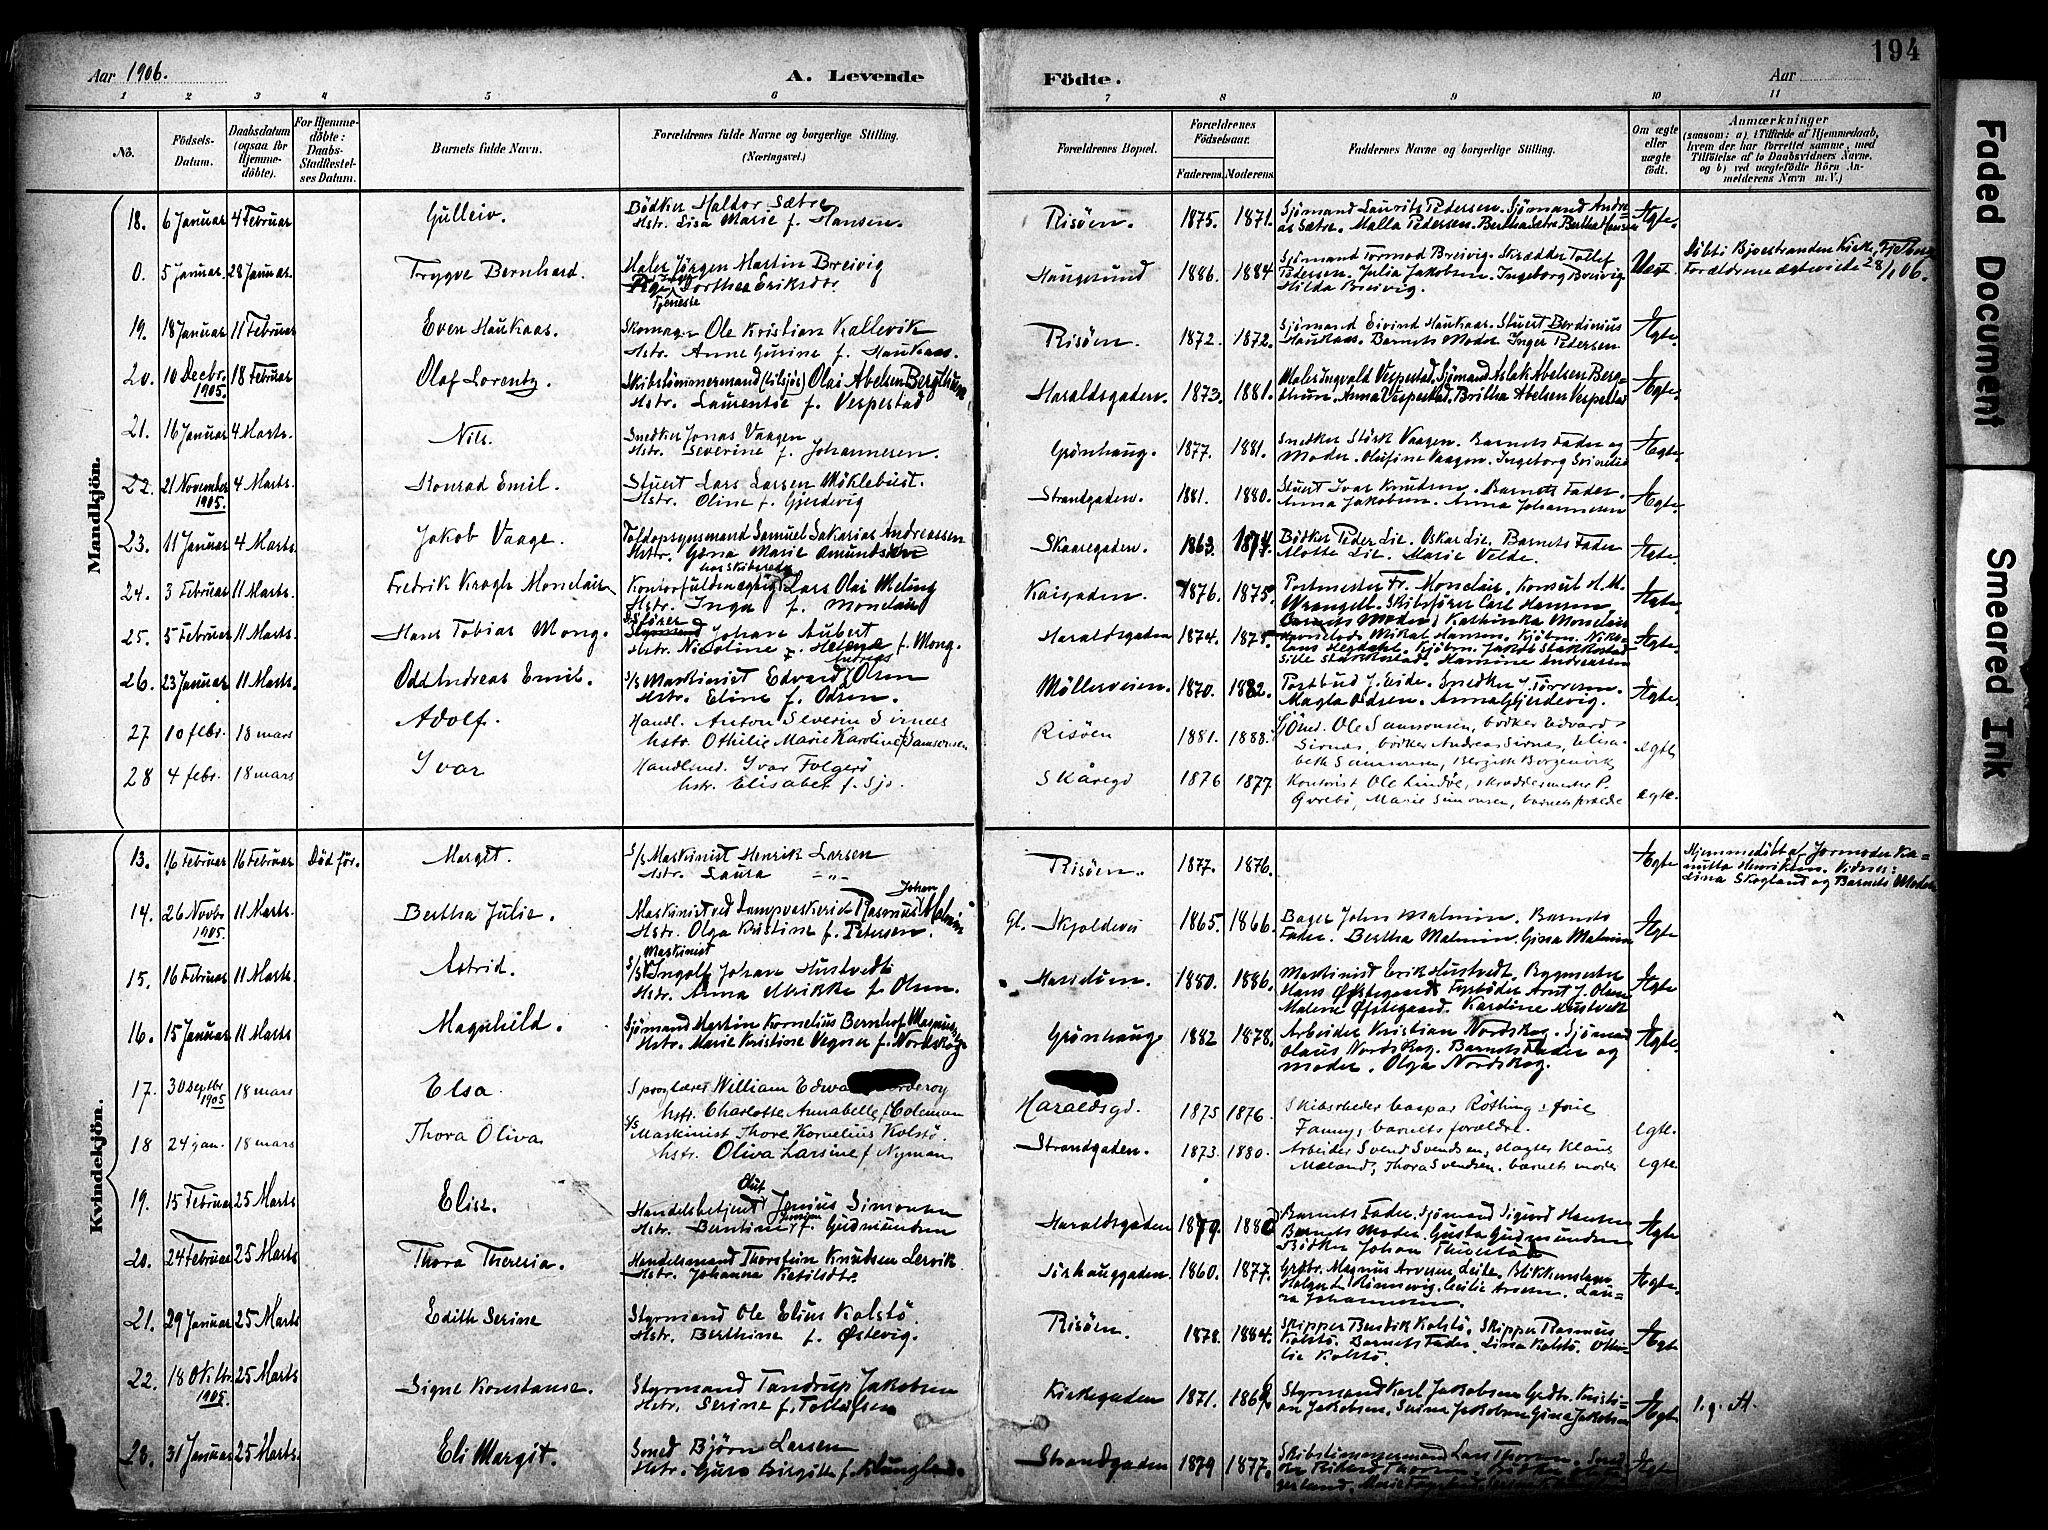 194
Aar 1906.
A. Levende
Födte.
Aar
1 2 3 4 5 6 7 8 9 10 11
No.
Födsels-Datum.
Daabsdatum (ogsaa for Hjemmedöbte).
For Hjemmedöbte: Daabs-Stadfæstelses Datum.
Barnets fulde Navn.
Forældrenes fulde Navne og borgerlige Stilling.
(Næringsvei.)
Forældrenes Bopæl.
Forældrenes Födselsaar.
Faderens. Moderens.
Faddernes Navne og borgerlige Stilling.
Om ægte eller uægte födt.
Anmærkninger
(saasom: a) i Tilfælde af Hjemmedaab,
hvem der har forrettet samme, med
Tilföielse af to Daabsvidners Navne,
og b) ved uægtefödte Börn An-
melderens Navn m. V.)
Mandkjön.
18. 6 Januar 4 Februar Gulleiv. Bödker Haldor Sætre
Hstr. Lisa Marie f. Hansen. Risöen. 1875. 1871. Sjömand Laurits Pedersen. Sjömand Andre-
as Sætre. Malla Pedersen. Bertha Hansen Ægte.
0. 5 Januar. 28 Januar. Trygve Bernhard. Maler Jörgen Martin Breivig
Pige Dorthea Eriksdtr. Haugesund 1886. 1884 Sjömand Tormod Breivig. Skrædder Tollef
Pedersen. Julia Jakobsen. Ingeborg Breivig
Hilda Breivig. Uægt. Döbt i Bjoestranden Kirke, Fjelberg
Forældrene ægteviede 28/1 06.
19. 18 Januar 11 Februar Even Haukaas. Skomager Ole Kristian Kallevik
Hstr. Anne Gurine f. Haukaas. Risöen. 1872. 1872. Sjömand Eivind Haukaas. Stuert Berdinius
Haukaas. Barnets Moder. Inger Pedersen Ægte.
20. 10 Decbr. 1905. 18 Februar Olaf Lorentz. Skibstömmermand (tilsjös) Olai Abelsen Bergthun,
Hstr. Laurentse f. Vespestad Haraldsgaden. 1873. 1881. Maler Ingvald Vespestad. Sjömand Aslak Abelsen Berg-
thun. Anna Vespestad. Britha Abelsen Vespestad Ægte.
21. 16 Januar 4 Marts. Nils. Snedker Jonas Vaagen
Hstr. Severine f. Johannesen. Grönhaug. 1877. 1881. Snedker Störk Vaagen. Barnets Fader og
Moder. Olufine Vaagen. Ingeborg Ægte.
22. 21 November 1905. 4 Marts. Konrad Emil. Stuert Lars Larsen Möklebust.
Hstr. Oline f. Gjerdevig Strandgaden. 1881. 1880. Stuert Ivar Knudsen. Barnets Fader.
Anna Jakobsen. Anna Johannesen Ægte.
23. 11 Januar 4 Marts. Jakob Vaage. Toldopsynsmand Samuel Sakarias Andreassen
Hstr. Gjena Marie Amundsen Skaaregaden. 1863. 1874. Bödker Peder Lie. Oskar Lie. Barnets Fader
Lie. Marie Velde. Ægte.
24. 3 Februar 11 Marts. Fredrik Krogh Monclair Kontorfuldmægtig Lars Olai Meling
Hstr. Inga f. Monclair Kaigaden. 1876. 1875. Postmester Fr. Monclair. Konsul H. M.
Wrangell. Skibsförer Carl Hansen.
Barnets Moder. Kathinka Monclair Ægte.
25. 5 Februar 11 Marts. Hans Tobias Mong. Styrmand Johan Aubert
Hstr. Nicoline Helene f. Mong. Haraldsgaden 1874. 1875. Mikal Hansen. Kjöbm. Nik-
laus Hegdahl. Kjöbm. Jakob Stakkestad
Sille Stakkestad. Hansine Andreassen Ægte.
26. 23 Januar 11 Marts. Odd Andreas Emil. S/s Maskinist Edvard Andreas Olsen
Hstr. Eline f. Odsen. Möllerveien. 1870. 1882. Postbud J. Eide. Snedker J. Törresen.
Magla Odsen. Anna Gjerdevig. Ægte.
27 10 febr. 18 mars Adolf. Handl. Anton Severin Sirnes
hstr. Othilie Marie Karoline f Samsonsen Risöen 1881. 1888. Sjömd. Ole Samsonsen, bödker Edvard
Sirnes, bödker Andreas Sirnes, Elisa-
beth Samsonsen, Bergith Borgenvik egte
28 4 febr. 18 mars Ivar Handlsmd. Ivar Folgerö
hstr. Elisabet f. Sjo. Skåregd 1876 1877 Kontorist Ole Lindöe, skræddermester P.
Övrebö, Marie Simonsen, barnets forældre egte.
Kvindekjön.
13. 16 Februar 16 Februar Död för. Marget. S/s Maskinist Henrik Larsen
Hstr. Laura -"- Risöen. 1877. 1876. Ægte Hjemmedöbt af Jormoder Ka-
nutta Henriksen. Vidner:
Lina Skogland og Barnets Moder
14. 26 Novbr 1905. 11 Marts. Bertha Julie. Maskinist ved Lampvaskerid Rasmus Johan Malmin
Hstr. Olga Kristine f. Petersen. Gl. Skjoldevei 1865. 1866. Bager John Malmin. Barnets
Fader. Bertha Malmin. Gina Malmin Ægte
15. 16 Februar. 11 Marts. Astrid. S/s Maskinist Ingolf Johan Hustvedt
Hstr. Anna Mikke f. Olsen. Hasselöen. 1880. 1886. Maskinist Erik Hustvedt. Bygmester
Hans Östegaard. Fyrböder Arnt J. Olsen
Malene Östegaard. Karoline Hustvedt Ægte
16. 15 Januar 11 Marts Magnhild. Sjömand Martin Kornelius Bernhof Magnus
Hstr. Marie Kristine Vegner f. Nordskog. Grönhaug. 1882 1878. Arbeider Kristian Nordskog. Sjömand
Olaus Nordskog. Barnets Fader og
moder. Olga Nordskog. Ægte.
17. 30 septbr 1905 18 mars Elsa. Sproglærer William Edward Corderoy
hstr. Charlotte Annabelle f. Coleman Haraldsgd. 1875 1876. Skibsrheder Caspar Röthing & frue
Fanny, barnets forældre. egte.
18 24 jan. 18 mars Thora Oliva S/s Maskinist Thore Kornelius Kolstö.
hstr. Oliva Larsine f Nyman Strandgaden. 1873. 1880. Arbeider Svend Svendsen, slagter Klaus
Mæland, Thora Svendsen. barnets moder egte.
19. 15 Februar 25 Marts Elise. Handelsbetjent Oluf Jenius Simonsen
Hstr. Bentine f. Gudmundsen Haraldsgaden 1879. 1880 Barnets Fader. Sjömand Sigurd Hansen
Barnets Moder. Gusta Gudmundsen
Bödker Johan Thuestad Ægte
20. 24 Februar 25 Marts. Thora Theresia. Handelsmand Thorstein Knudsen Lervik
Hstr. Johanna Ketilsdtr. Sörhauggaden. 1860. 1877. Grdbr. Magnus Arvesen Leite. Blikkenslager
Helge L. Rönnevig. Cecilie Arvesen. Lau-
ra Johannesen. Ægte.
21. 29 Januar 25 Marts Edith Serine Styrmand Ole Elius Kolstö.
Hstr. Berthine f. Östevig. Risöen. 1878. 1884. Skipper Bendik Kolstö. Skipper Rasmus
Kolstö. Barnets Fader. Lina Kolstö. Othi-
lie Kolstö. Ægte
22. 18 Oktbr. 1905. 25 Marts Signe Konstanse. Styrmand Tandrup Jakobsen
Hstr. Serine f. Tollefsen Kirkegaden 1871. Styrmand Karl Jakobsen Grdbr. Kristi-
an Jakobsen. Serine Jakobsen Gina Jakobsen Ægte 1. g. A.
23. 31 Januar 25 Marts. Eli Margit. Smed Björn Larsen
Hstr. Guro Birgitte f. Klungland. Strandgaden 1879 1877. Skibstömmermand Lars Thorsen. Ægte
Faded Document
Smeared Ink